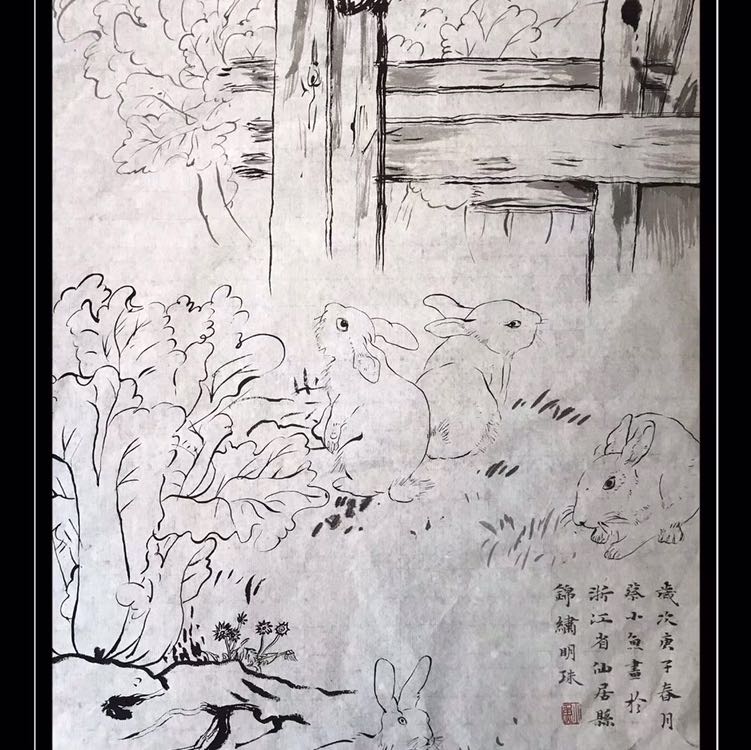 歲次庚子春月
蔡小魚畫於
浙江省仙居縣
錦繡明珠